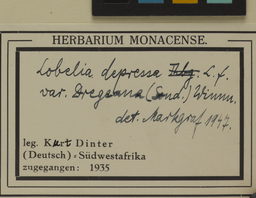 HERBARIUM MONACENSE.
Lobelia depressa Thbg. L. f.
var. Dregeana (Sond.) Wimm.
det. Markgraf 1947.
leg. Kurt Dinter
(Deutsch)-Südwestafrika
zugegangen: 1935